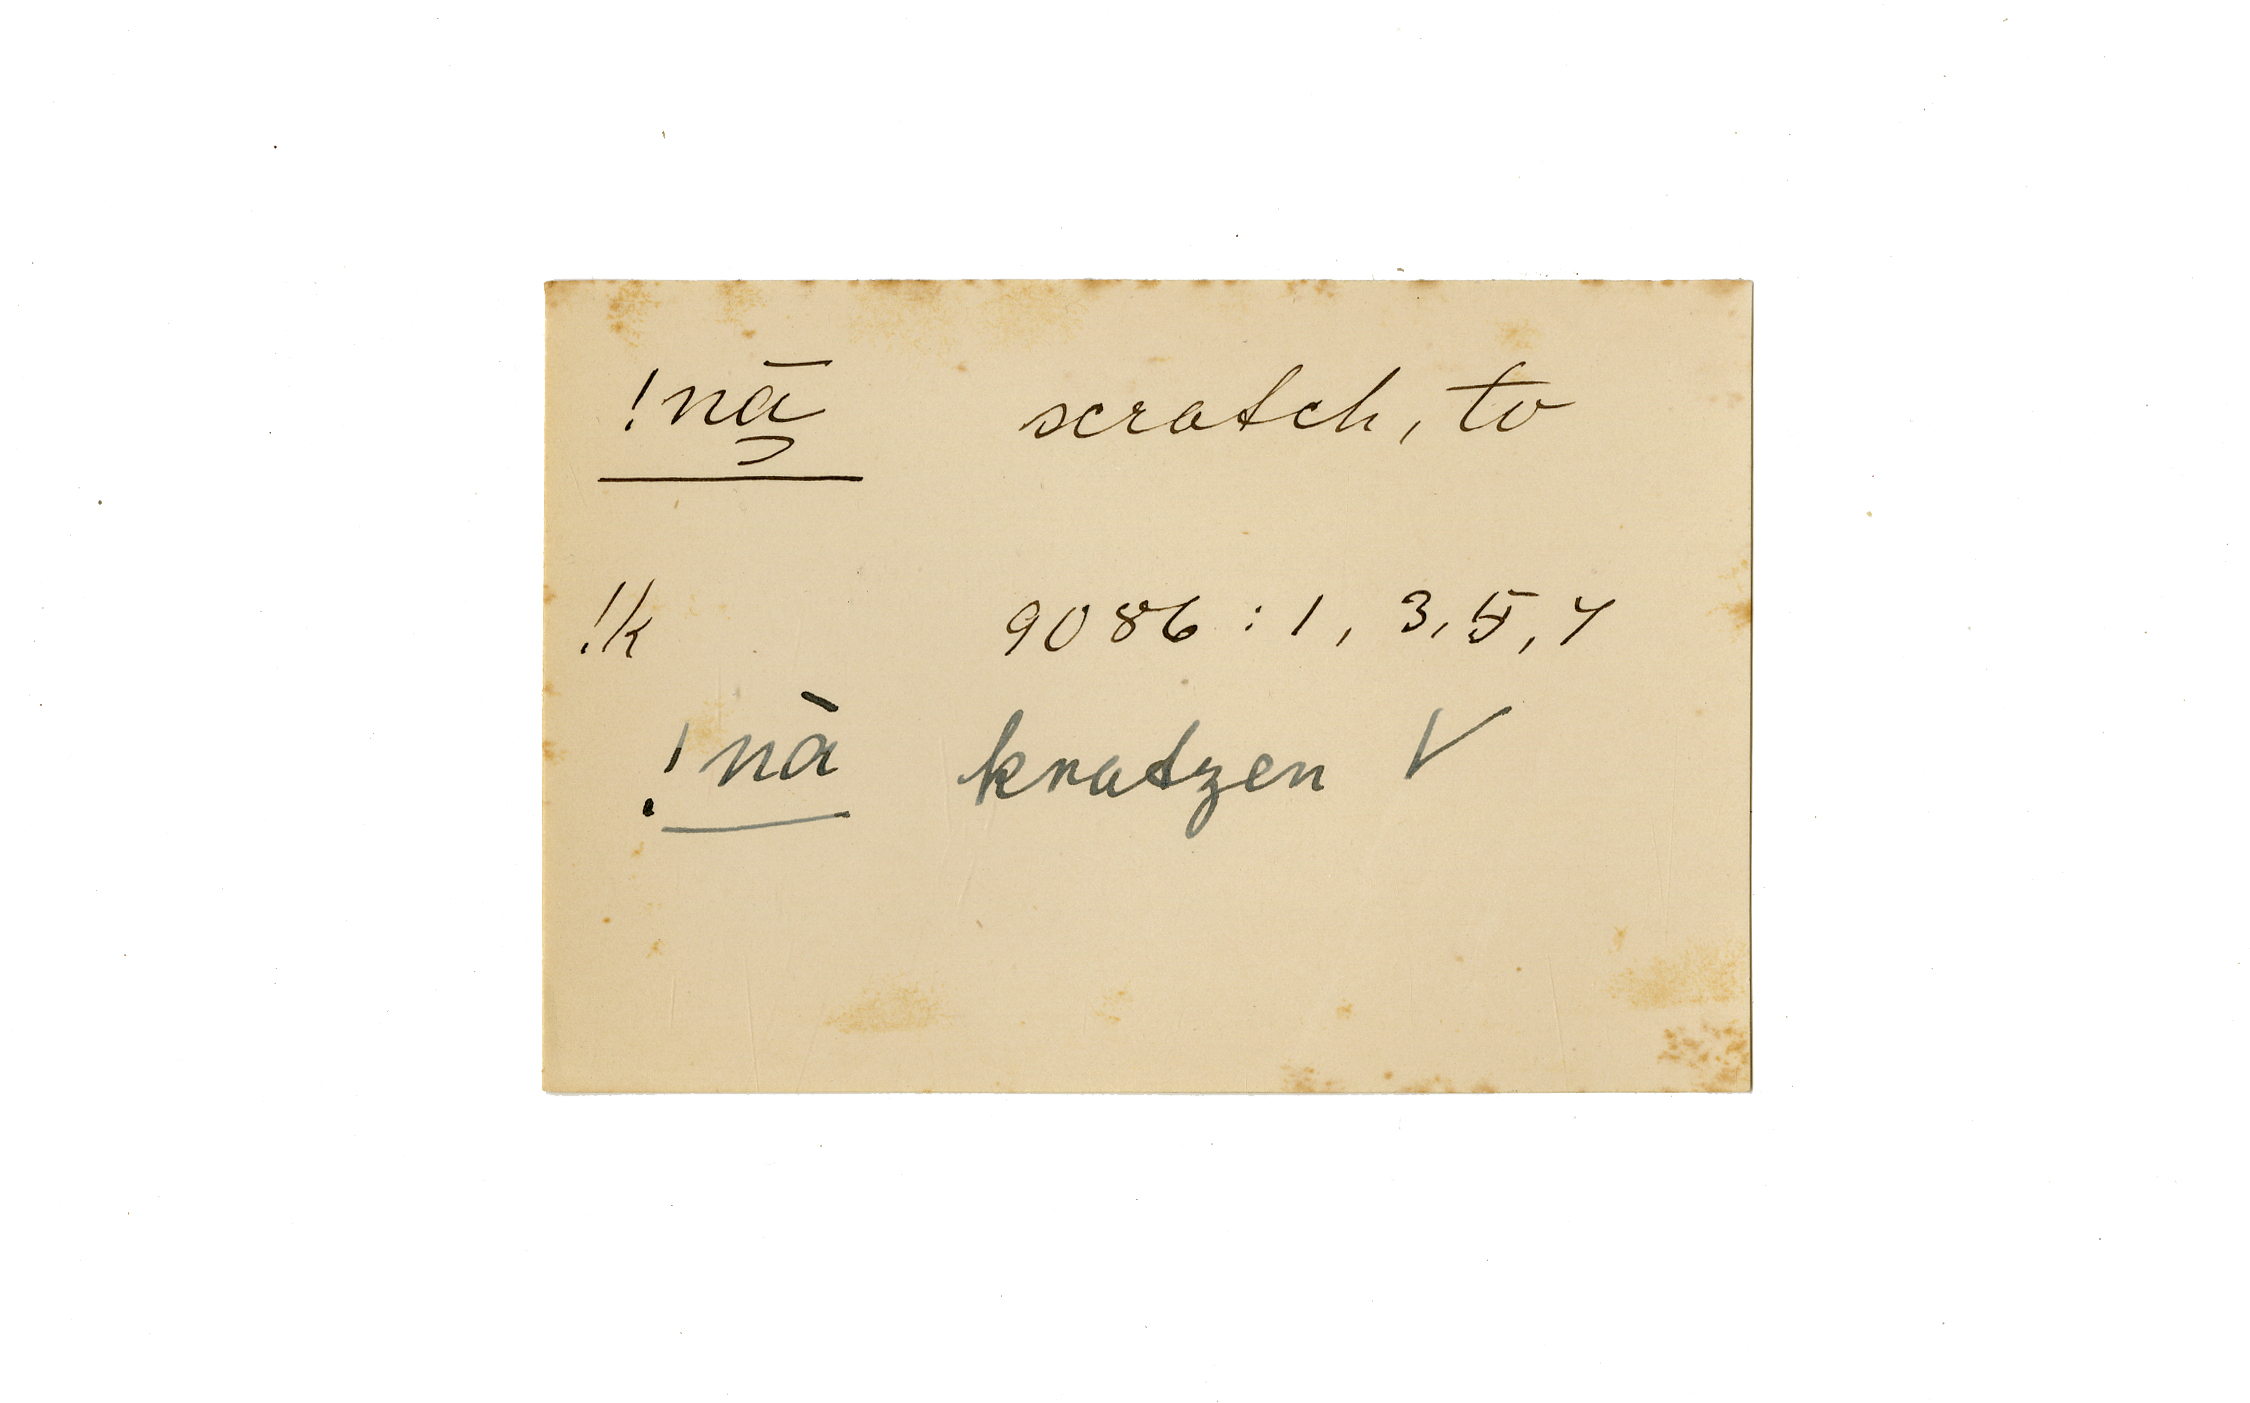 !nā̱ scratch, to
!k 9086 : 1, 3, 5, 7
!nà kratzen V